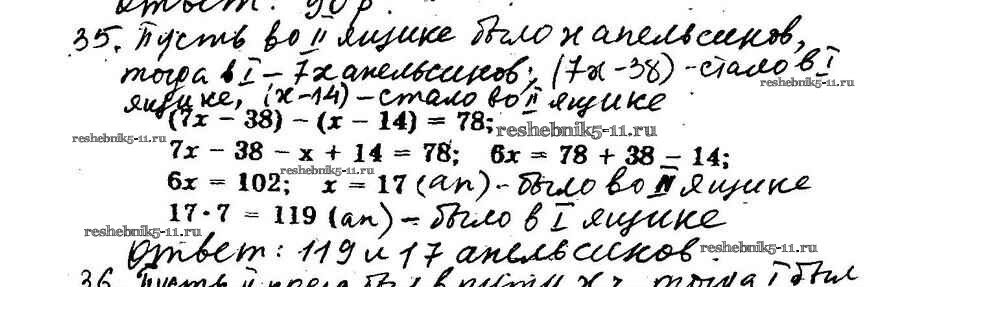 Ответ: 90 р.
35. Пусть во II ящике было x апельсинов,
тогда в I – 7x апельсинов; (7x – 38) – стало в I
reshebnik5-11.ru
ящике, (x – 14) – стало во II ящике
(7x − 38) − (x − 14) = 78;
reshebnik5-11.ru
reshebnik5-11.ru
7x − 38 − x + 14 = 78; 6x = 78 + 38 − 14;
reshebnik5-11.ru
6x = 102; x = 17 (ап) – было во II ящике
17·7 = 119 (ап) – было в I ящике
reshebnik5-11.ru
Ответ: 119 и 17 апельсинов.
reshebnik5-11.ru
36. Пусть II
тогда I был